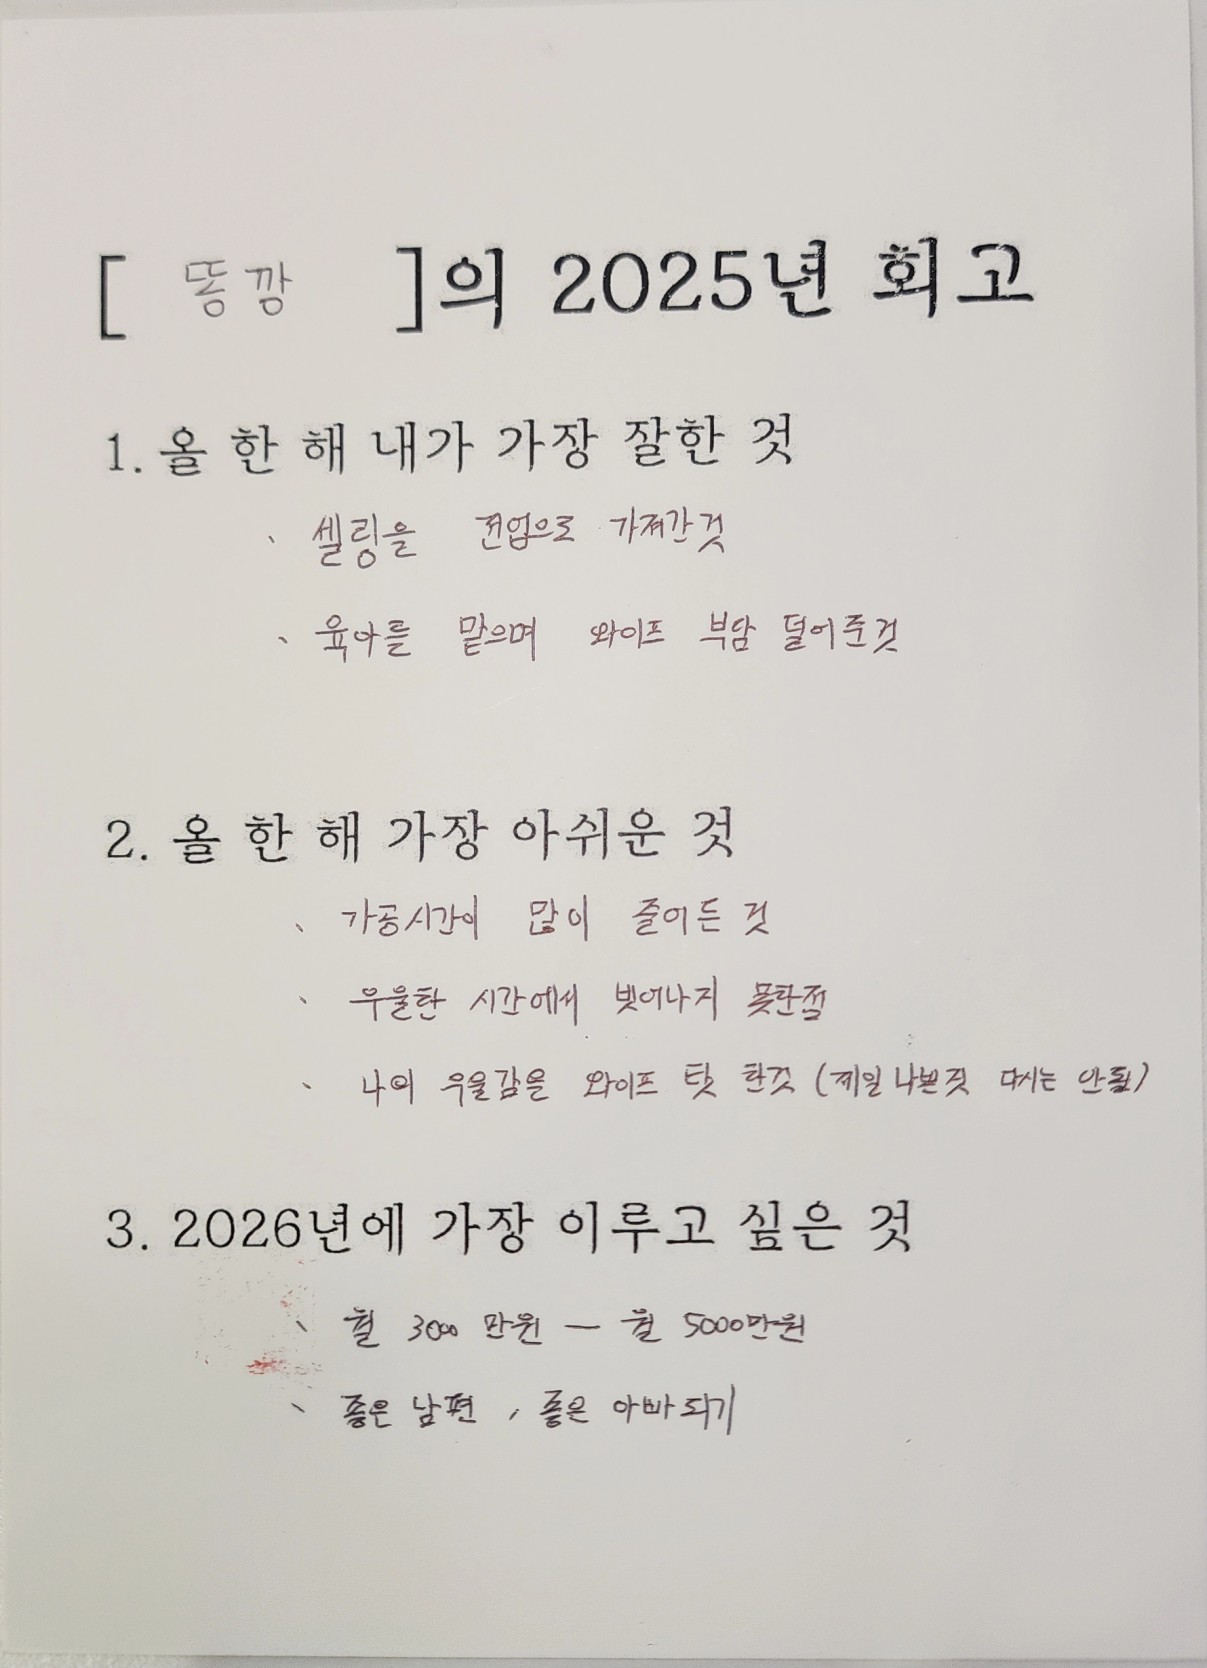 [ 똥깡 ]의 2025년 회고
1. 올 한 해 내가 가장 잘한 것
、 셀링을 전업으로 가져간것
、 육아를 맡으며 와이프 부담 덜어준것
2. 올 한 해 가장 아쉬운 것
、 가공시간이 많이 줄어든 것
、 우울한 시간에서 벗어나지 못한점
、 나의 우울감을 와이프 탓 한것 (제일 나쁜짓 다시는 안됨)
3. 2026년에 가장 이루고 싶은 것
、 월 3000 만원 — 월 5000만원
、 좋은 남편, 좋은 아빠되기